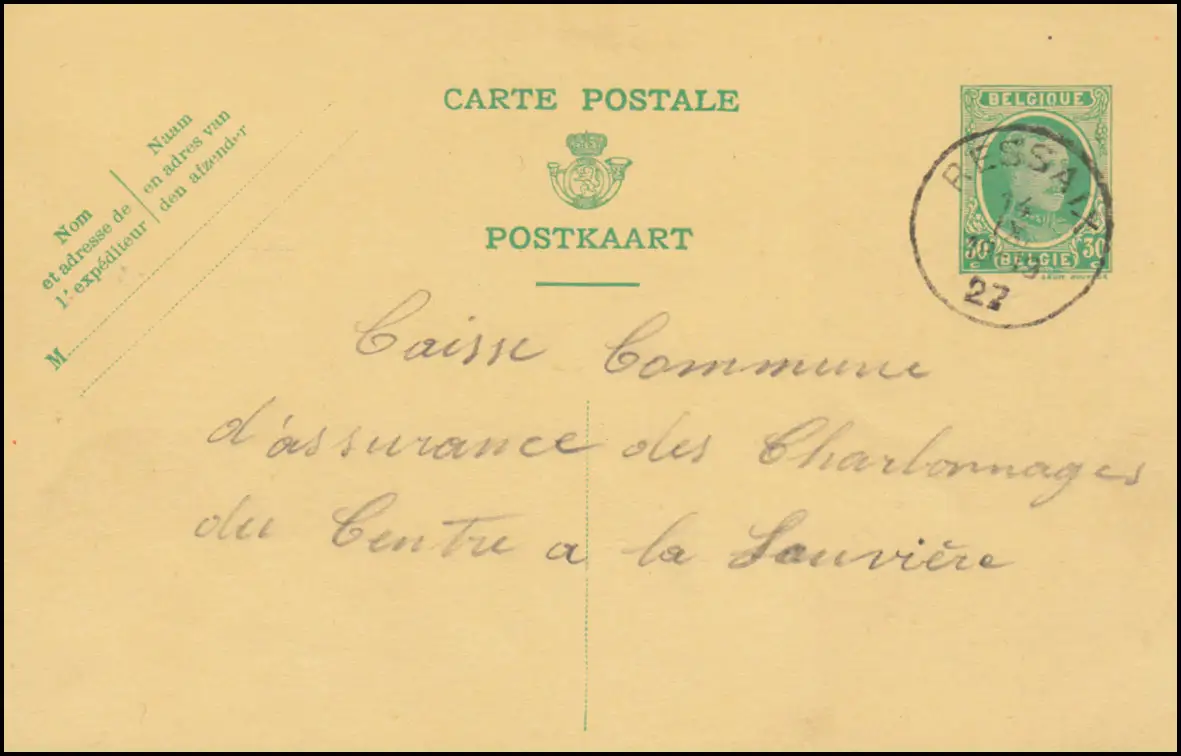 CARTE POSTALE
POSTKAART
Nom
et adresse de
l'expéditeur
Naam
en adres van
den afzender
M
BELGIQUE
30 BELGIE 30
RESSAIX
14
27
Caisse Commune
d'assurance des Charbonnages
du Centre a la Louvière